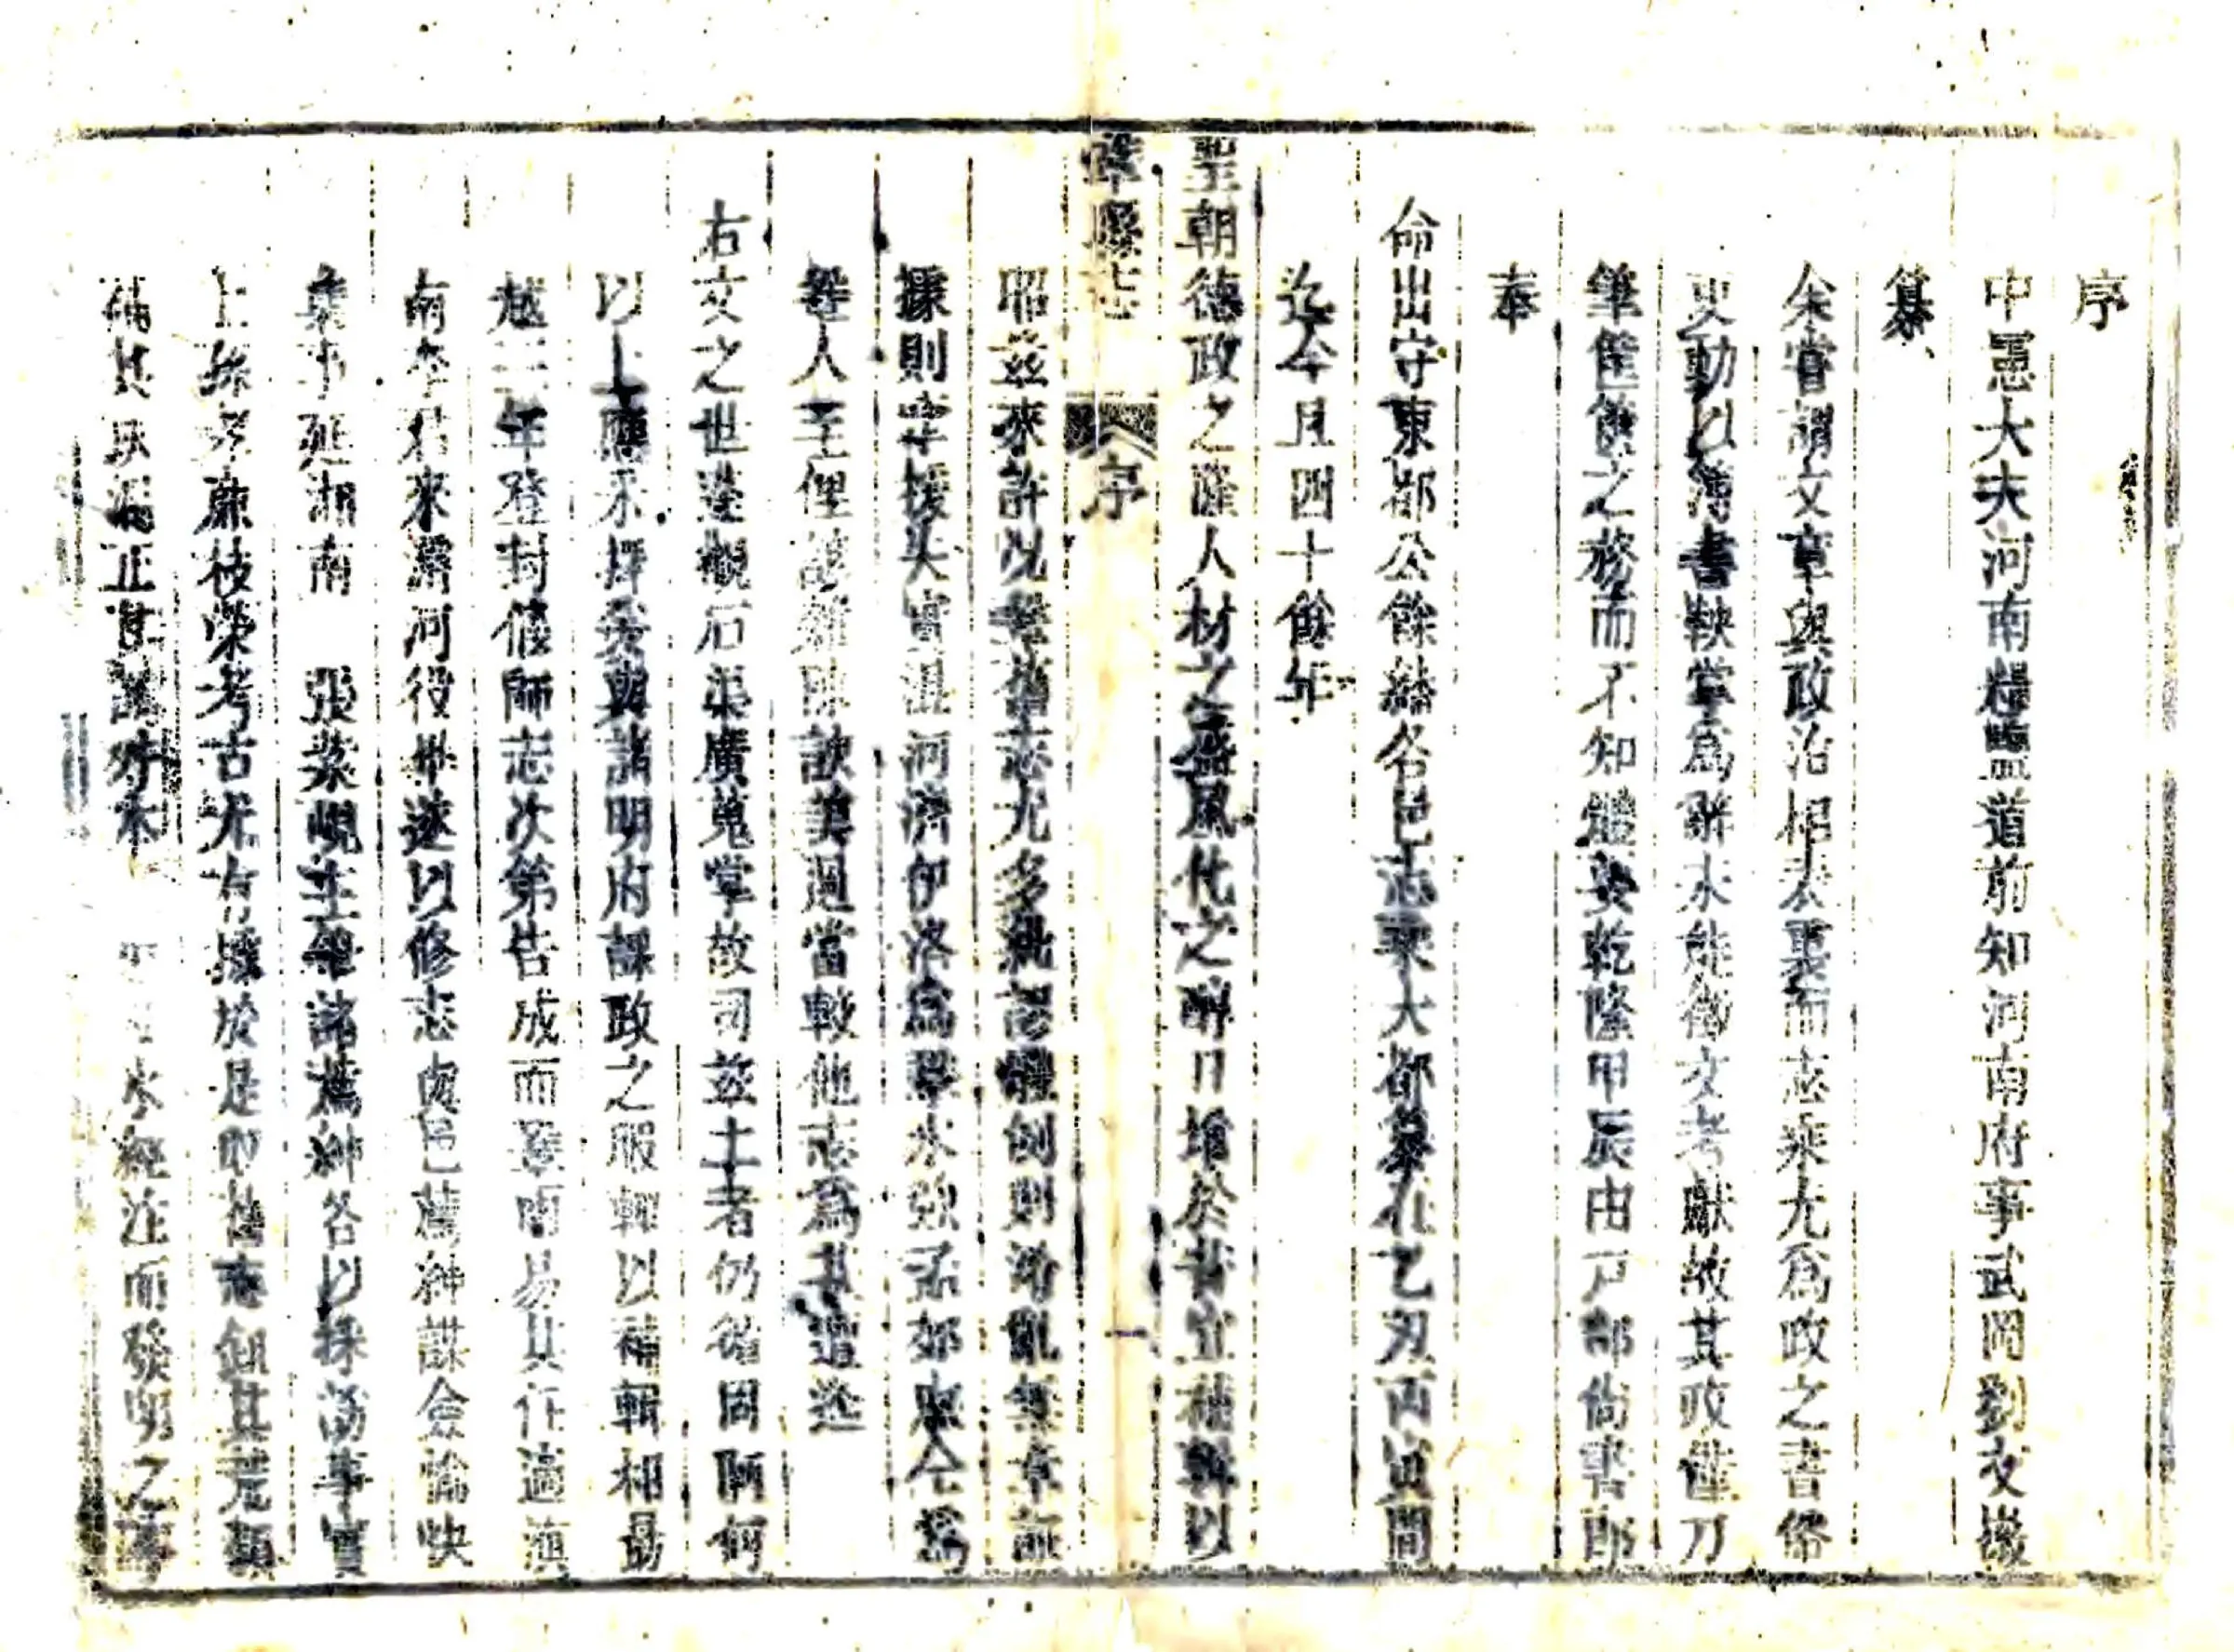 序
中憲大夫河南糧鹽道前知河南府事武岡劉文徽
纂
余嘗謂文章與政治相表裏而志乘尤爲政之書俗
吏動以簿書鞅掌爲辭未能徵文考獻故其政僅刀
筆筐篋之務而不知體要乾隆甲辰由戸部尚書郎
奉
命出守東都公餘繙各邑志乘大都纂在乙丑丙寅間
迄今且四十餘年
聖朝德政之隆人材之盛風化之醇日增於昔宜補輯以
鞏縣志 序 一
昭茲來許况鞏舊志尤多紕謬體例則淆亂無章
據則援失實混河濟伊洛爲鞏水強孟郊與仝爲
鞏人至俚雜陳諛美過當較他志爲甚遭逢
右文之世蓬觀石渠廣蒐掌故司茲土者仍循固陋何
以上應采擇爰與諸明府課政之暇輒以補輯相勗
越二年登封偃師志次第告成而鞏簡易其作適滇
南李君來濬河役畢遂以修志與邑薦紳謀僉論快
乗事延湘南 張紫峴主筆諸薦紳各以採訪事實
上孫孝廉枝榮考古尤有據於是即舊志鉏其荒穢
補其缺漏正其譌舛本 水經注而發明之